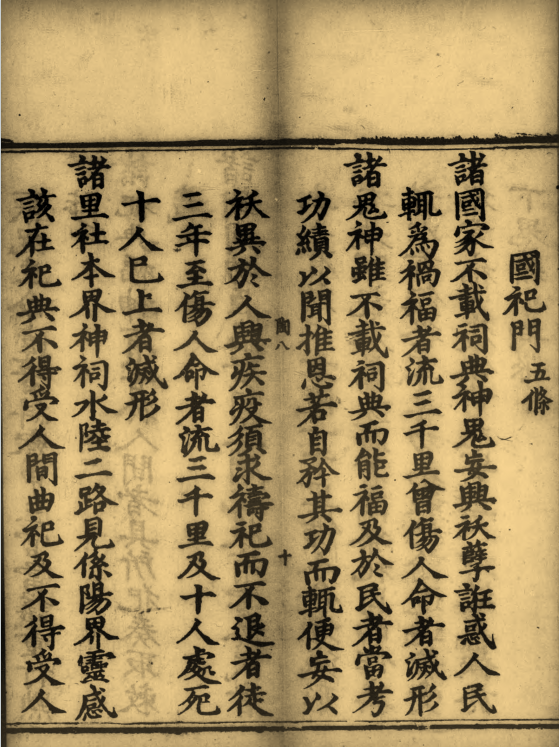 國祀門五條
諸國家不載祠典神鬼妄興祅孽誑惑人民
輒為禍福者流三千里曾傷人命者滅形
諸鬼神雖不載祠典而能福及於民者當考
功績以聞推恩若自矜其功而輒便妄以
祅異於人興疾疫須求禱祀而不退者徒
三年至傷人命者流三千里及十人處死
十人已上者滅形
諸里社本界神祠水陸二路見係陽界靈感
該在祀典不得受人間曲祀及不得受人